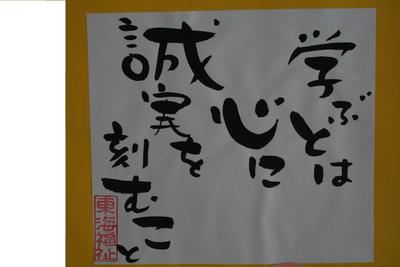 学ぶとは
心に
誠実を
刻むこと
東海福祉